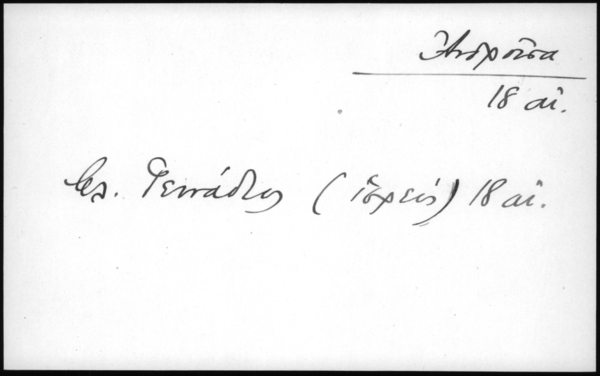 Ἀνδροῦσα
18 αἰ.
βλ. Γεννάδιος (ἱερεύς) 18 αἰ.